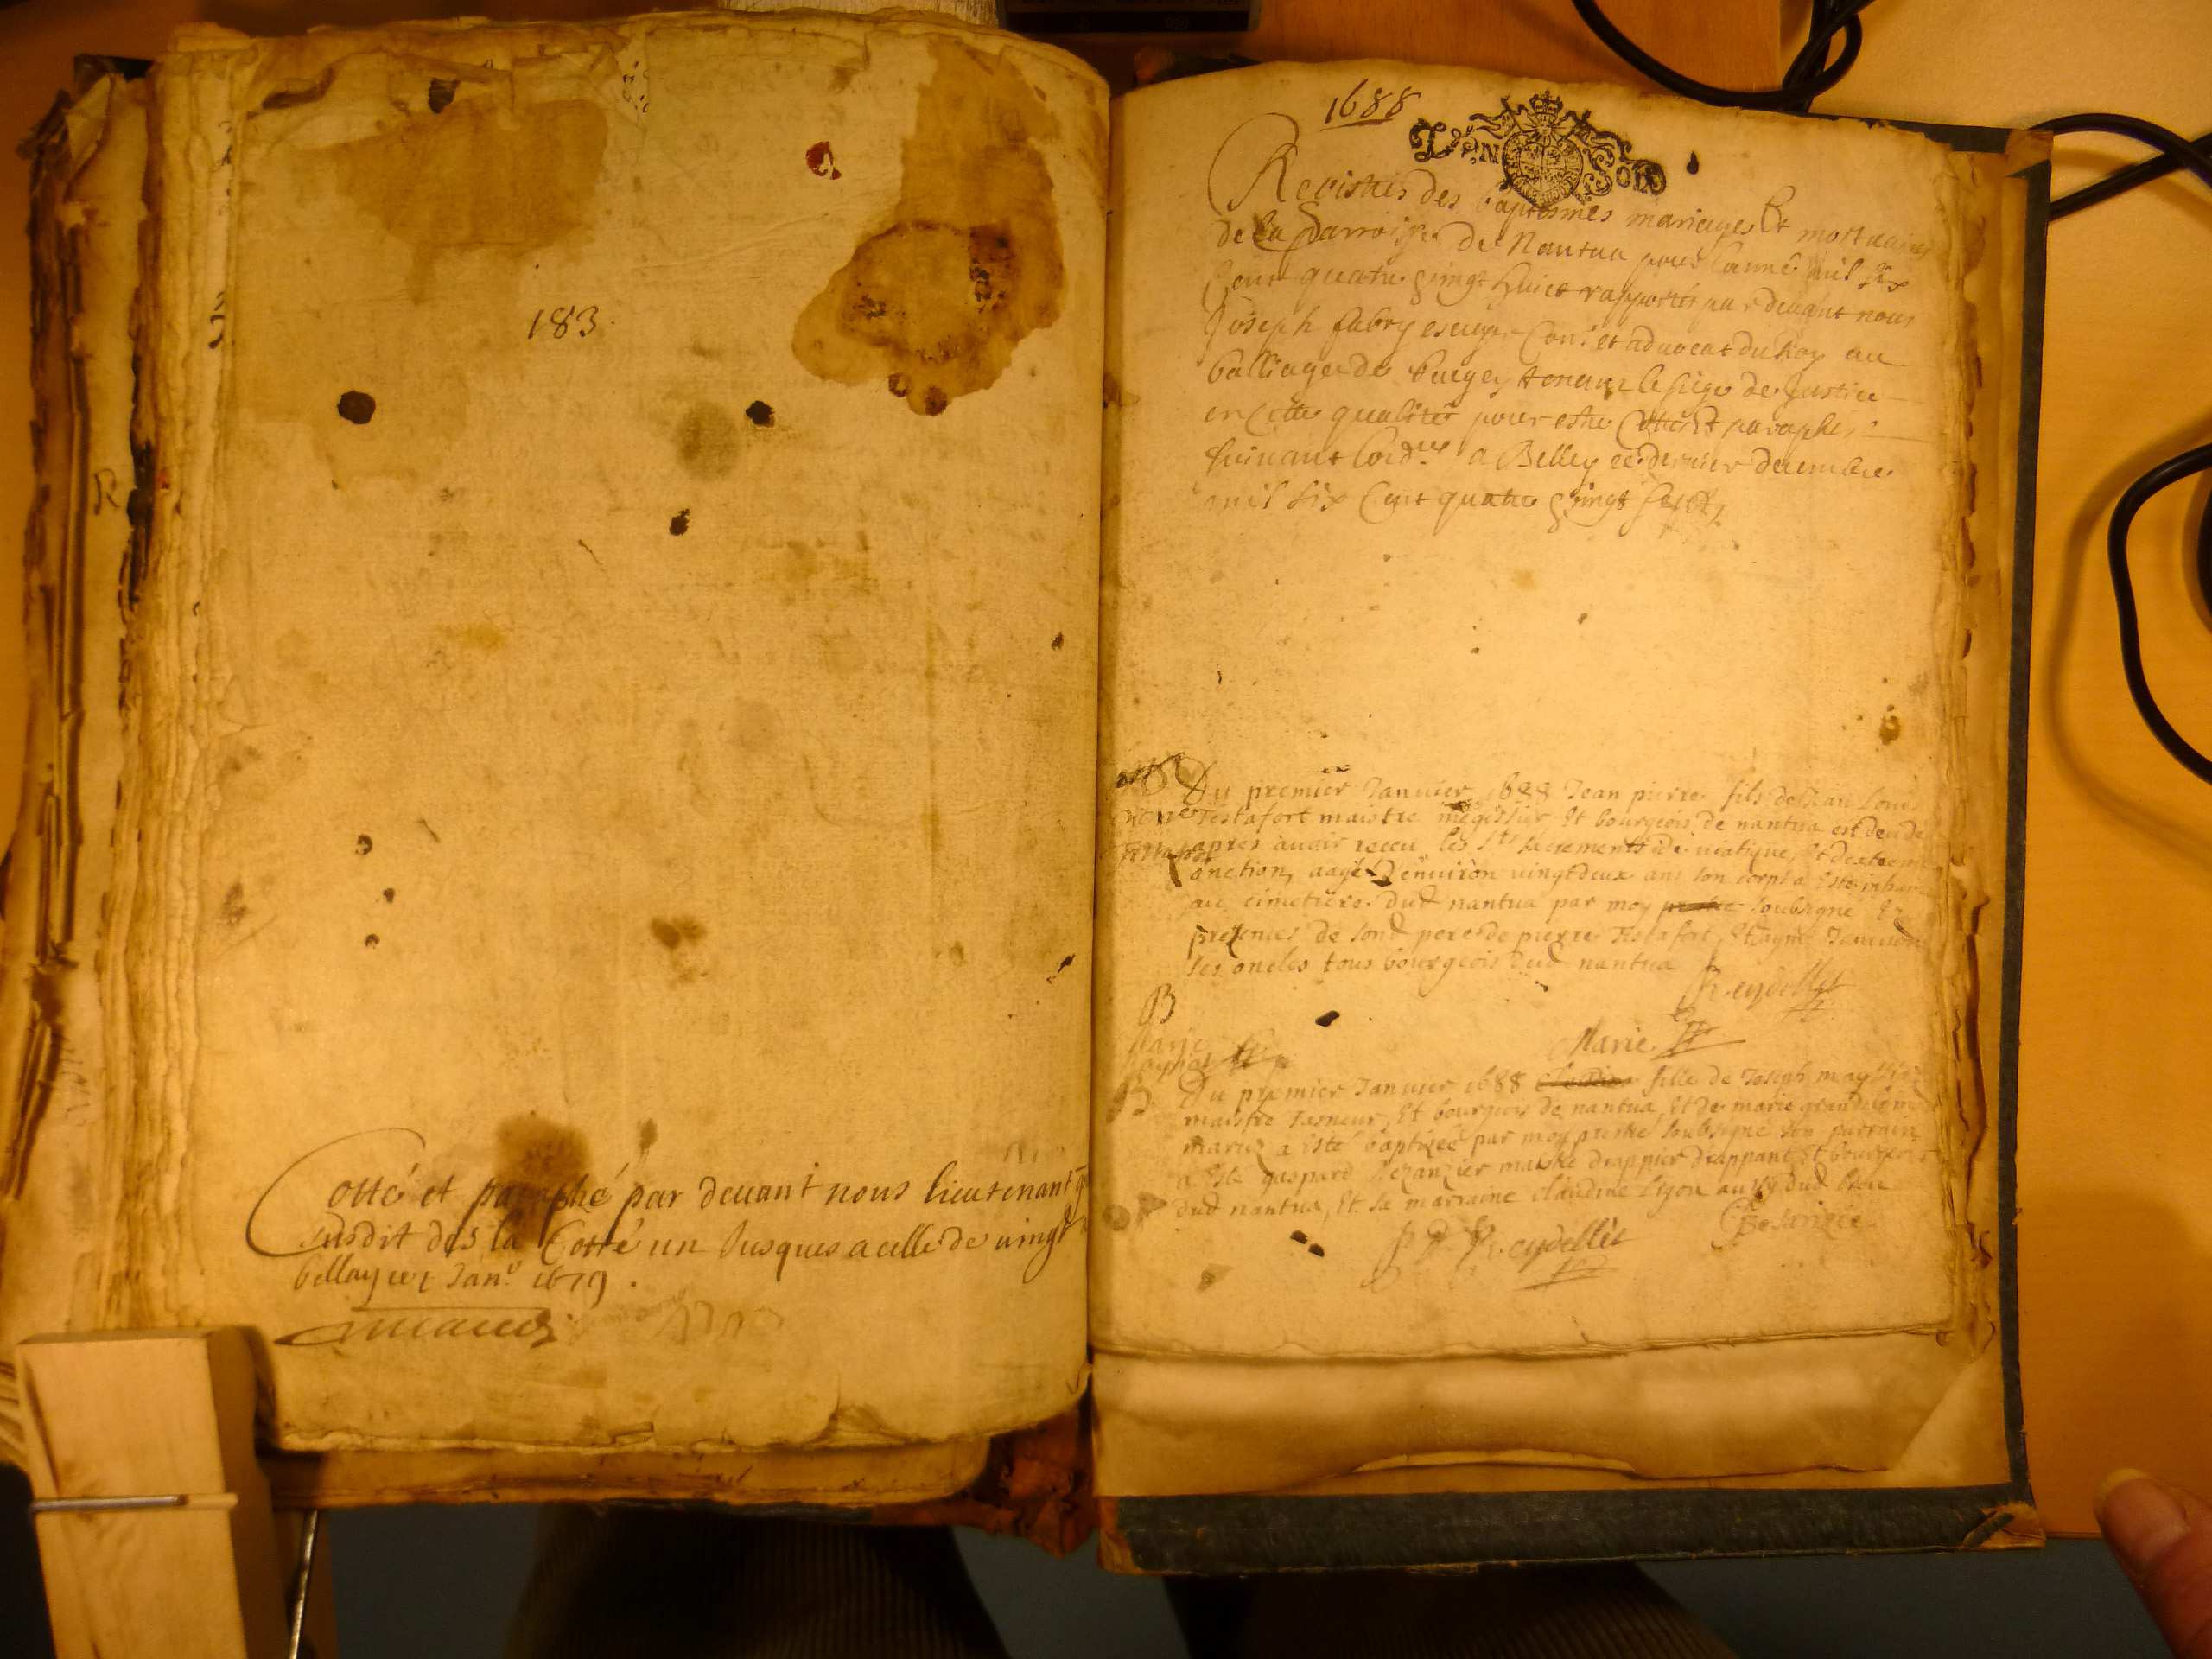 183.
Cotté et paraphé par devant nous lieutenant
susdit des la Cotté un Jusques a celle de vingt
bellay ce 1 Jan.r 1679.
1688
Registres des baptesmes mariages Et mortuaires
de la Parroisse de Nantua pour lanné mil six
Cent quatre vingt huict rapportés par devant nous
Joseph fabry escuyer Con.r et advocat du Roy au
balliage de bugey tenant le siege de Justice
en Cette qualité pour estre Cottés Et paraphés
suivant lord.ce a Belley ce dernier decembre
mil six Cent quatre vingt sept
Du premier Janvier 1688 Jean pierre fils de Jean Louis
Testafort maistre megissier Et bourgeois de nantua est decedé
apres avoir receu les Sts sacrements de viatique Et dextreme
onction, aagé Denviron vingtdeux ans son corps a Esté inhumé
au cimetiere dud nantua par moy prestre soubsigné En
presences de sond pere de pierre Testafort, Et
ses oncles tous bourgeois dud nantua
Reydellet
B
Marie
Marie
B
Du premier Janvier 1688 fille de Joseph
maistre Et bourgeois de nantua, Et de marie
mariés a Esté baptizée par moy prestre soubsigné son parrain
a Esté gaspard maistre drappier drappant Et bourgeois
dud nantua, Et sa marraine claudine Lyon aussy dud lieu
Reydellet